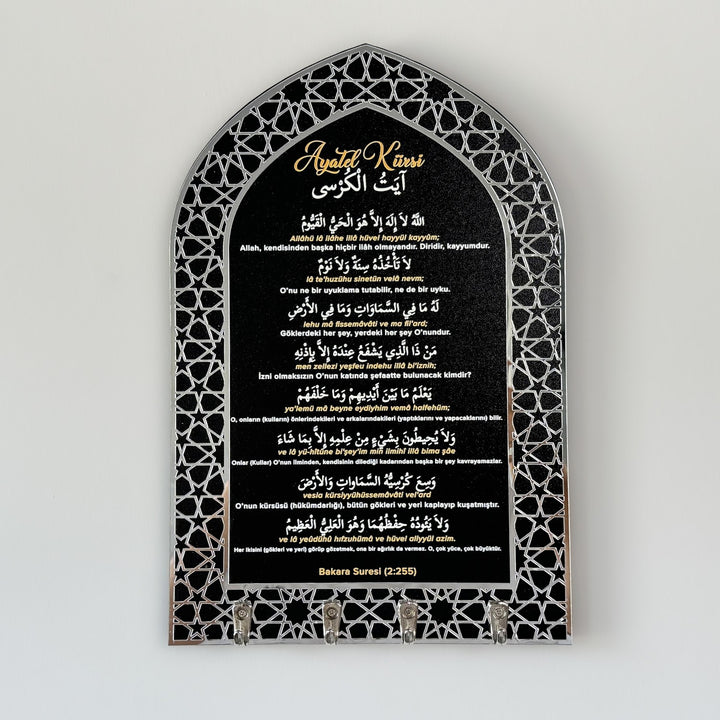 Ayatel Kürsi
آيَتُ الْكُرْسى
اَللّٰهُ لاَ إِلَهَ إِلاَّ هُوَ الْحَيُّ الْقَيُّومُ
Allâhü lâ ilâhe illâ hüvel hayyül kayyûm;
Allah, kendisinden başka hiçbir ilâh olmayandır. Diridir, kayyumdur.
لاَ تَأْخُذُهُ سِنَةٌ وَلاَ نَوْمٌ
lâ te'huzühu sinetün velâ nevm;
O'nu ne bir uyuklama tutabilir, ne de bir uyku.
لَهُ مَا فِي السَّمَاوَاتِ وَمَا فِي الأَرْضِ
lehu mâ fissemâvâti ve ma fil'ard;
Göklerdeki her şey, yerdeki her şey O'nundur.
مَنْ ذَا الَّذِي يَشْفَعُ عِنْدَهُ إِلاَّ بِإِذْنِهِ
men zellezi yeşfeu indehu illâ bi'iznih;
İzni olmaksızın O'nun katında şefaatte bulunacak kimdir?
يَعْلَمُ مَا بَيْنَ أَيْدِيهِمْ وَمَا خَلْفَهُمْ
ya'lemü mâ beyne eydiyhim vemâ halfehüm;
O, onların (kulların) önlerindekileri ve arkalarındakileri (yaptıklarını ve yapacaklarını) bilir.
وَلاَ يُحِيطُونَ بِشَيْءٍ مِنْ عِلْمِهِ إِلاَّ بِمَا شَاءَ
ve lâ yü-hîtûne bi'şey'im min ilmihî illâ bima şâe
Onlar (Kullar) O'nun ilminden, kendisinin dilediği kadarından başka bir şey kavrayamazlar.
وَسِعَ كُرْسِيُّهُ السَّمَاوَاتِ وَالأَرْضَ
vesia kürsiyyühüssemâvâti vel'ard
O'nun kürsüsü (hükümdarlığı), bütün gökleri ve yeri kaplayıp kuşatmıştır.
وَلاَ يَئُودُهُ حِفْظُهُمَا وَهُوَ الْعَلِيُّ الْعَظِيمُ
ve lâ yeûdühû hıfzuhümâ ve hüvel aliyyül azim.
Her ikisini (gökleri ve yeri) görüp gözetmek, ona bir ağırlık da vermez. O, çok yüce, çok büyüktür.
Bakara Suresi (2:255)